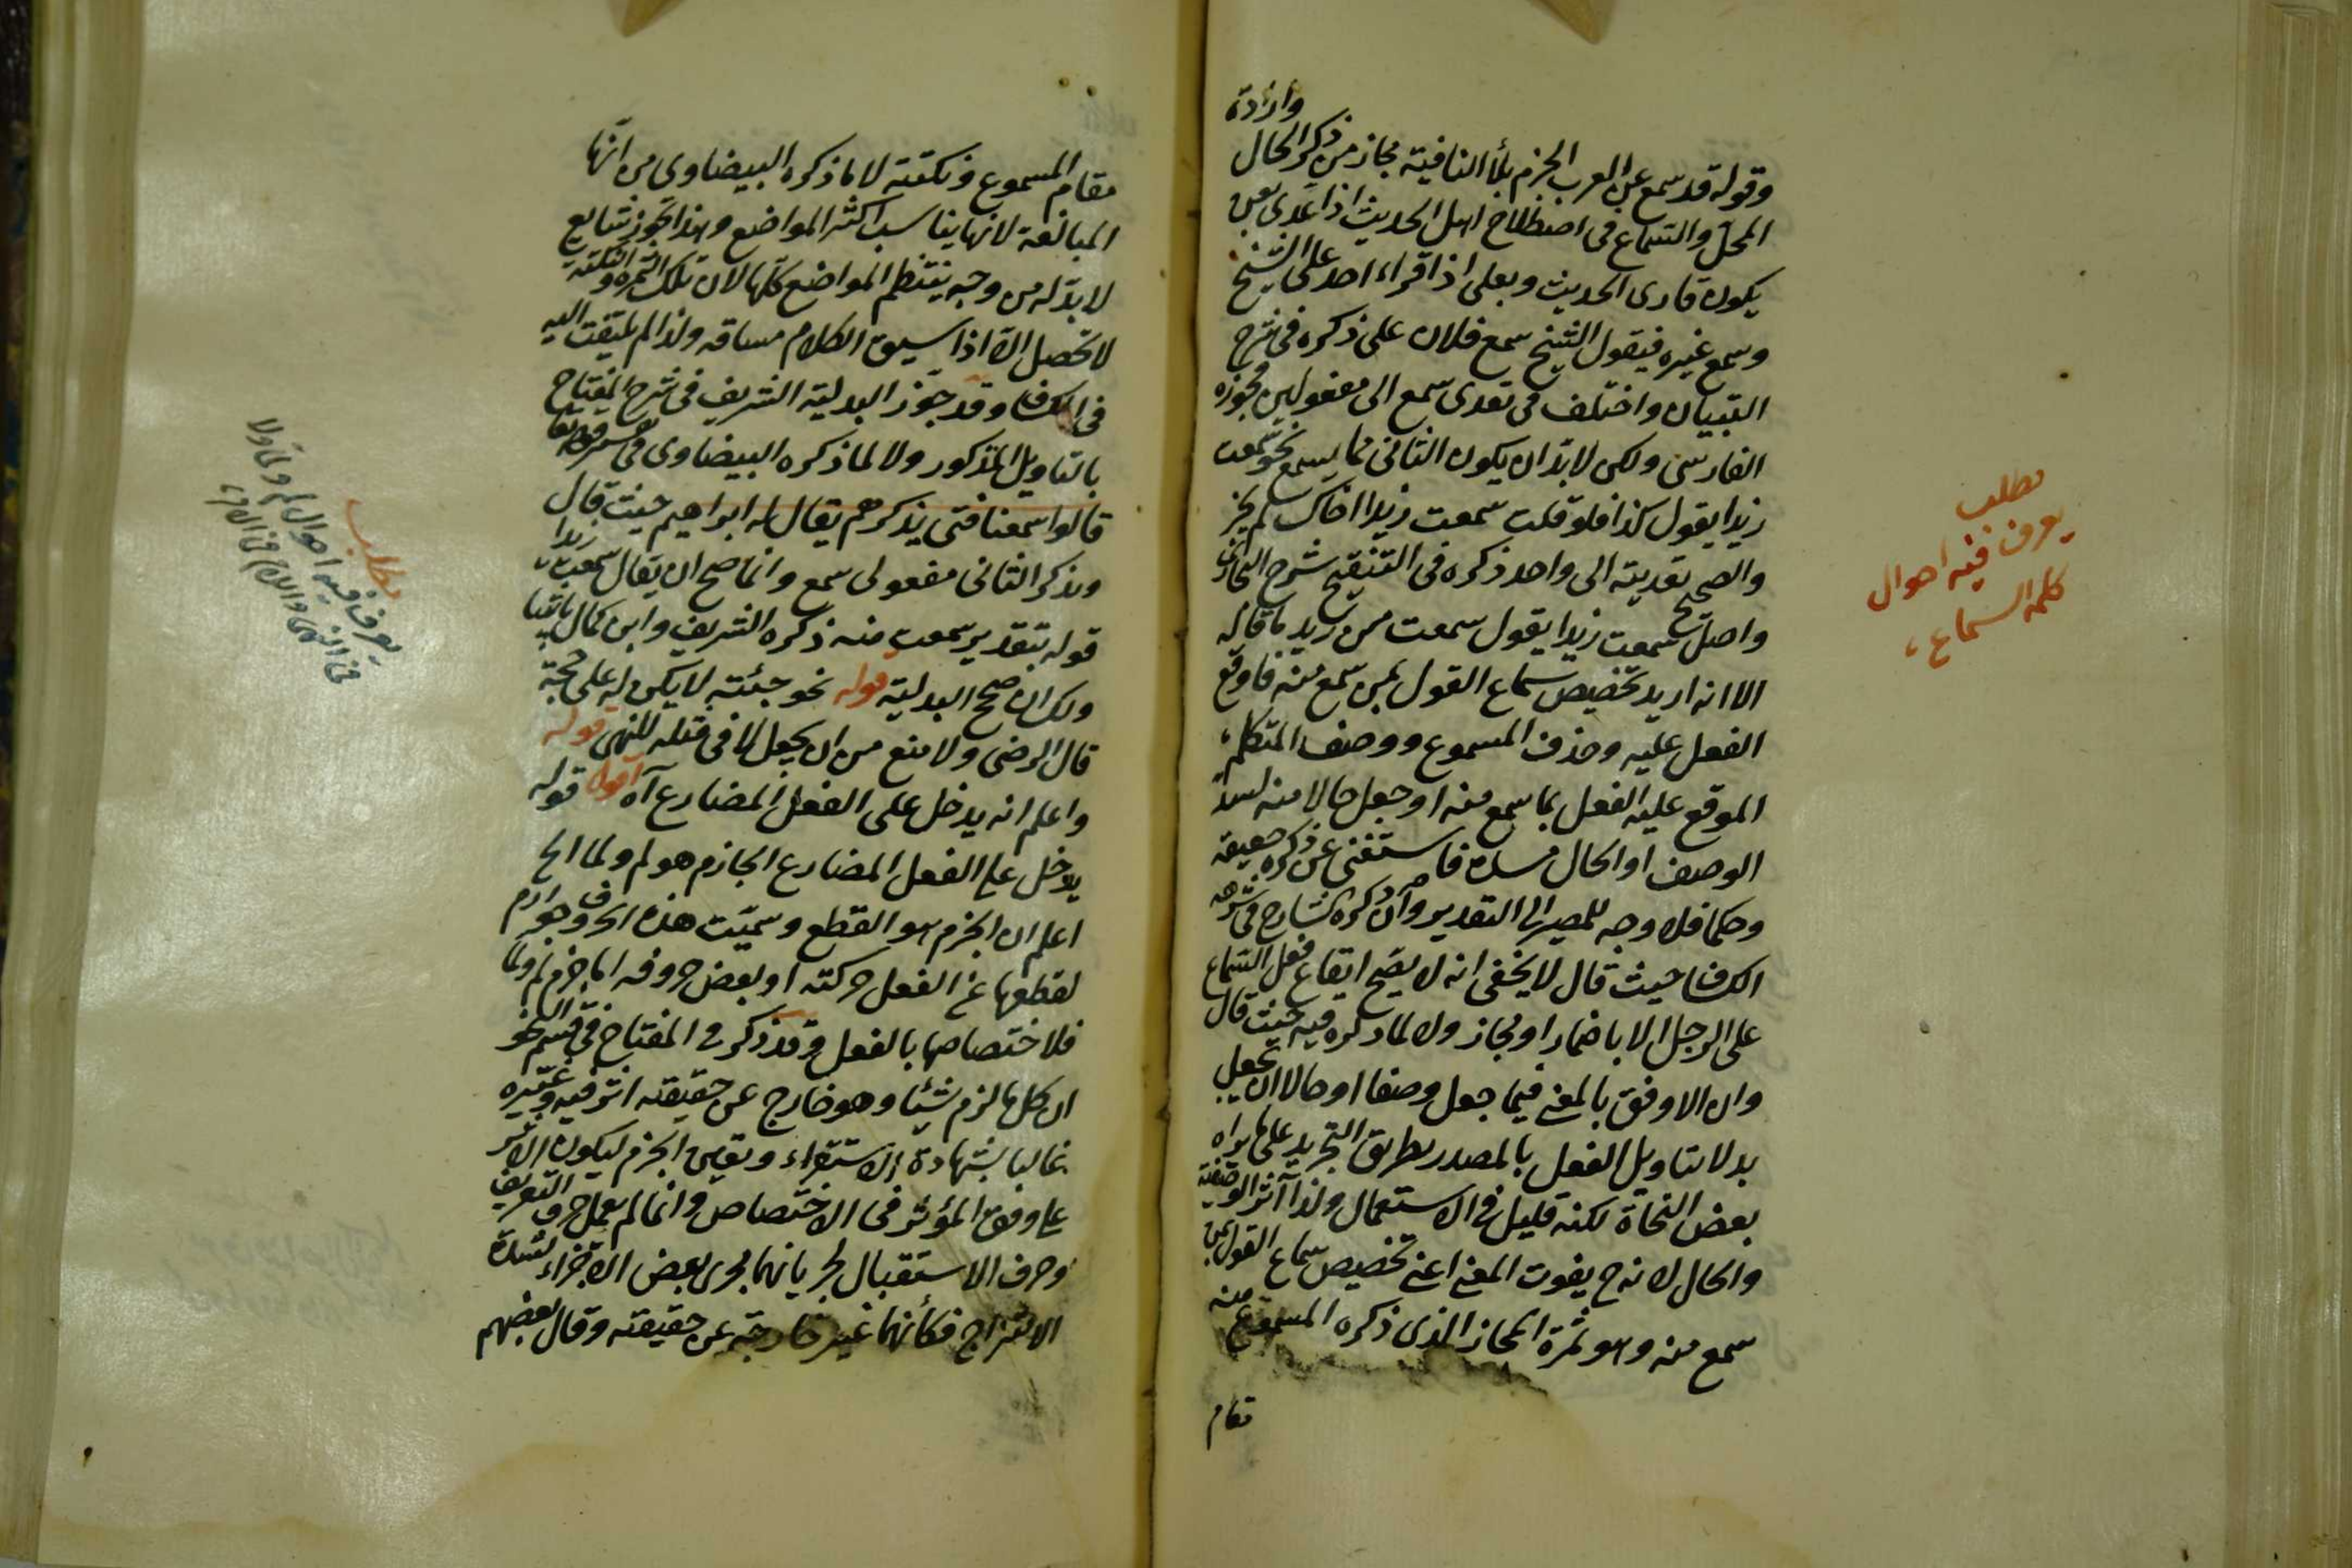 وارادة
وقوله قد سمع عن العرب الجزم بلا النافية مجاز من ذكر الحال
المحل والسماع فى اصطلاح اهل الحديث اذا عدى بعن
يكون قارى الحديث وبعلى اذا قراء احد على الشيخ
وسمع غيره فيقول الشيخ سمع فلان على ذكره فى شرح
التبيان واختلف فى تعدى سمع الى مفعولين فجوزه
الفارسى ولكن لابد ان يكون الثانى مما يسمع نحو سمعت
زيدا يقول كذا فلو قلت سمعت زيدا اخاك لم يجز
والصحيح تعديته الى واحد ذكره فى التنقيح شرح البخارى
واصل سمعت زيدا يقول سمعت من زيد ما قاله
الا انه اريد تخصيص سماع القول بمن سمع منه فاوقع
الفعل عليه وحذف المسموع ووصف المتكلم
الموقع عليه الفعل بما سمع منه او جعل حالا منه لسد
الوصف او الحال مسده فاستغنى عن ذكره حقيقة
وحكما فلا وجه للمصير الى التقدير وان ذكره الشارح فى شرحه
الكشاف حيث قال لا يخفى انه لا يصح ايقاع فعل السماع
على الرجل الا باضمار او مجاز ولا لما ذكره فيه حيث قال
وان الاوفق بالمعنى فيما جعل وصفا او حالا ان يجعل
بدلا بتاويل الفعل بالمصدر بطريق التجريد على ما يراه
بعض النحاة لكنه قليل فى الاستعمال ولذا آثر الوصفية
والحال لانه ح يفوت المعنى اعنى تخصيص سماع القول بمن
سمع منه وهو ثمرة المجاز الذى ذكره المسموع منه
مقام
مطلب
يعرف فيه احوال
كلمة السماع
مقام المسموع ونكتته لا ما ذكره البيضاوى من انها
المبالغة لانها يناسب اكثر المواضع وهذا تجوز شايع
لابد له من وجه ينتظم المواضع كلها لان تلك الثمرة والنكتة
لا تحصل الا اذا سيق الكلام مساقه ولذا لم يلتفت اليه
فى الكشاف وقد جوز البدلية الشريف فى شرح المفتاح
بالتاويل المذكور ولا لما ذكره البيضاوى فى تفسير قوله تعا
قالوا سمعنا فتى يذكرهم يقال له ابراهيم حيث قال
ويذكر الثانى مفعولى سمع وانما صح ان يقال سمعت زيدا
قوله بتقدير سمعت منه ذكره الشريف وابن كمال باشا
ولك ان تصحح البدلية قوله نحو جئته لا يكن له على حجة
قال الرضى ولا منع من ان يجعل لا فى مثله للنهى قوله
واعلم انه يدخل على الفعل المضارع آه اقول قوله
يدخل على الفعل المضارع الجازم هو لم ولما الخ
اعلم ان الجزم هو القطع وسميت هذه الحروف جوازم
لقطعها عن الفعل حركته او بعض حروفه اما جزم لم ولما
فلاختصاصها بالفعل وقد ذكر فى المفتاح فى قسم النحو
ان كل ما لزم شيئا وهو خارج عن حقيقته اثر فيه وغيره
غالبا بشهادة الاستقراء وتعين الجزم ليكون الاثر
على وفق المؤثر فى الاختصاص وانما لم يعمل حرف التعريف
وحرف الاستقبال لجريانهما مجرى بعض الاجزاء لشدة
الامتزاج فكأنهما غير خارجة عن حقيقته وقال بعضهم
مطلب
يعرف فيه احوال لم ولما ولا
فى النهى واللام فى الامر